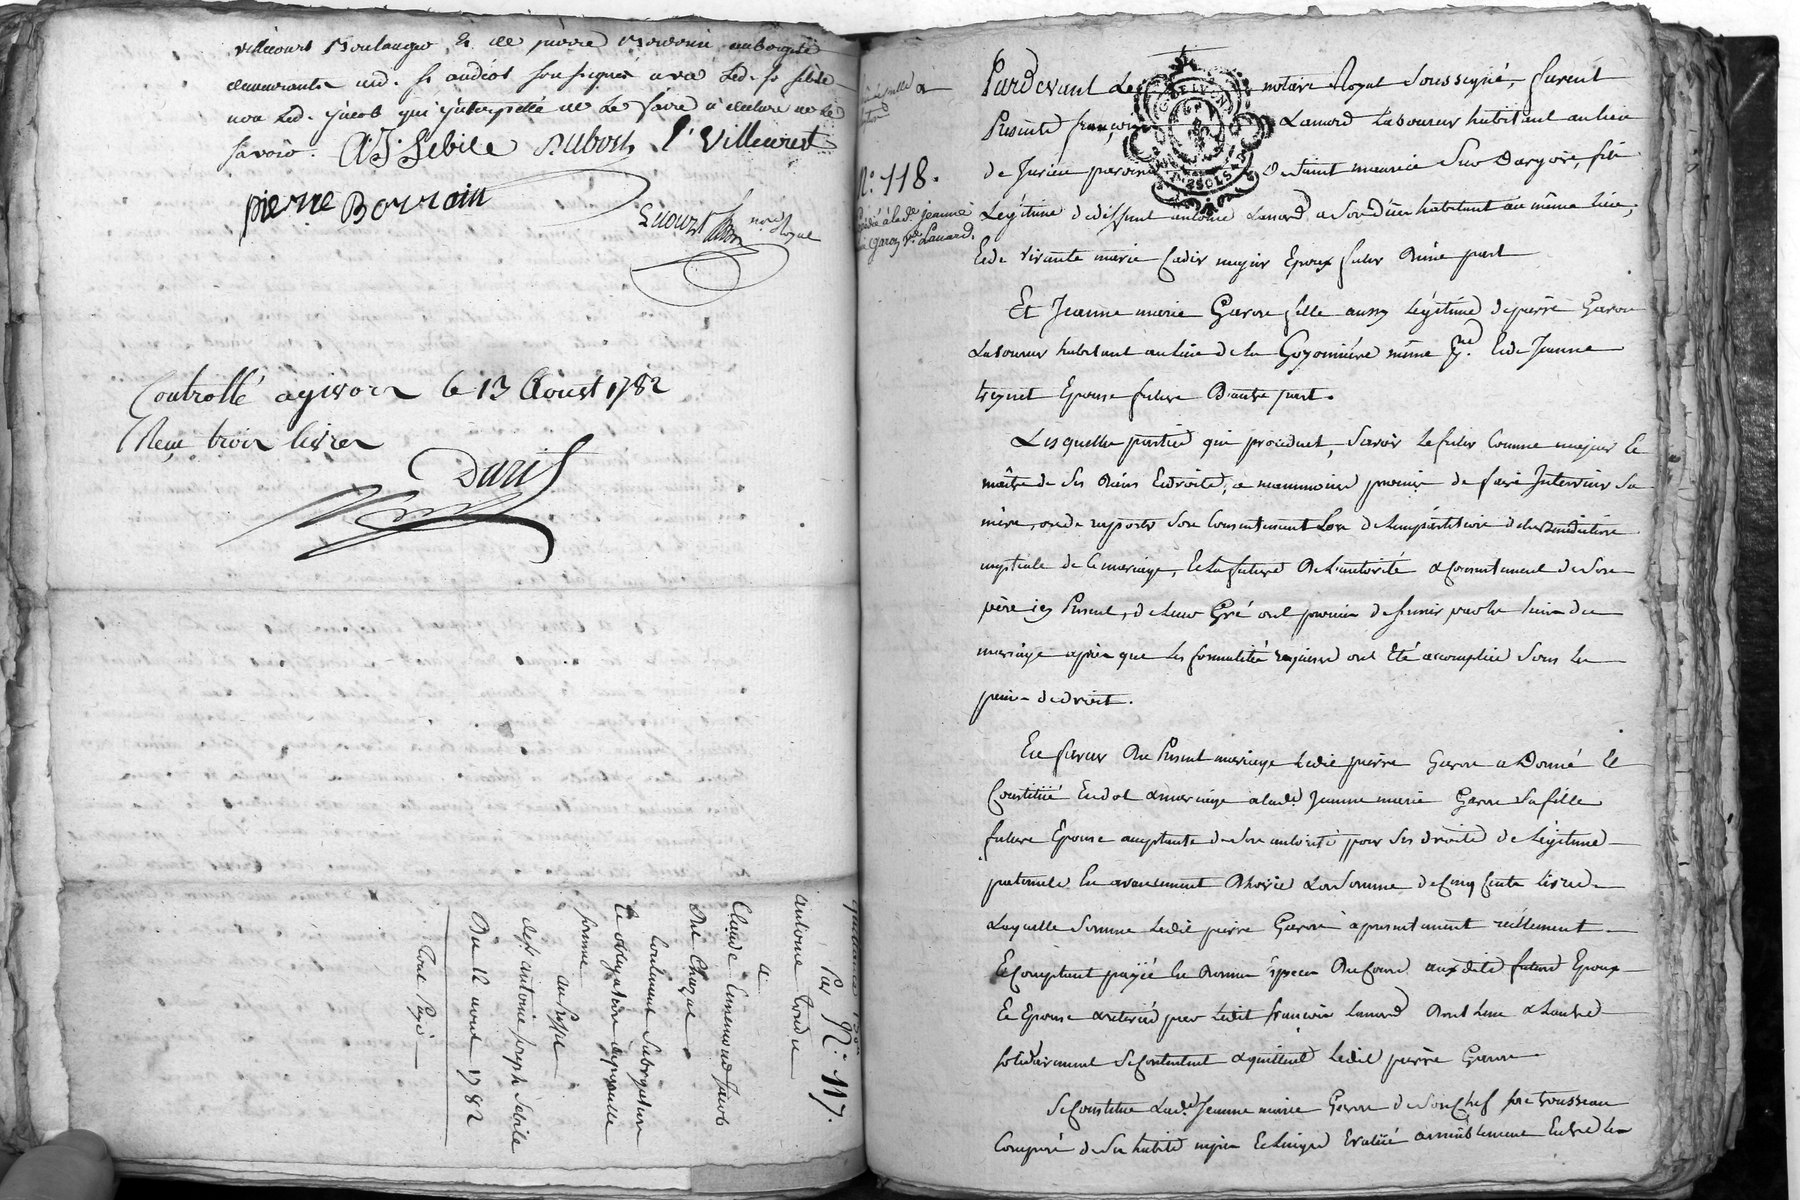 villecourt Boulanger & de pierre Borroin aubergiste
demeurants aud. st andéol soussignés avec led. sr sibile
non led. jacob qui interpellé de le faire a declaré ne le
savoir. A: J: Sebile Dubost P. Villecourt
pierre Borroin
nore Royal
Controllé a givors le 13 Aoust 1782
Reçu trois livres
Daris
Quittance
Par N.° 117.
antoine
a
Claude Ennemond Jacob
Due Chazue
Contenant Subrogation
Le obligation
somme
au Proffit
de sr antoine joseph Sebile
Du 12 aout 1782
Tout Payé
N.° 118.
Expédié à lad.e jeanne
marie Garon ve. Lanard.
Pardevant Le notaire Royal Soussigné, furent
Présents françois Lanard Laboureur habitant au lieu
de Jurieu paroisse De saint maurice Sur Dargoire, fils
Légitime de deffunt antoine Lanard a son Vivant habitant au même lieu,
Et de vivante marie Cadix majeur Epoux futur D'une part
Et Jeanne marie Garon fille aussy Légitime de pierre Garon
Laboureur habitant au Lieu de la Goyonnière même psse. Et de Jeanne
trejnet Epouse future D'autre part.
Lesquelles parties qui procedent, Savoir le futur Comme majeur Et
maître de Ses Biens Et droits, a neanmoins promis de faire Intervenir Sa
mère, ou de raporter Son Consentement Lors de L'impartition de la Benediction
nuptiale de Ce mariage, Et la future De L'autorité & Consentement de Son
père icy Present, de Leur Gré ont promis de s'unir par les Liens du
mariage après que Les formalités requises ont Eté accomplies Sous les
peines de droit.
En faveur Du Present mariage Ledit pierre Garon a Donné Et
Constitué En dot & mariage a lad.e Jeanne marie Garon Sa fille
future Epouse acceptante de Son autorité pour Ses droits de Légitime
paternels En avancement D'hoirie La Somme de Cinq Cents Livres
Laquelle Somme Ledit pierre Garon a presentement réellement
Et Comptant payée En Bonnes Espèces De Cours auxdits futurs Epoux
Et Epouse & retirée par Ledit françois Lanard Dont L'un & L'autre
Solidairement Se Contentent & quittent Ledit pierre Garon
Se Constitue Lad.e Jeanne marie Garon de Son Chef Son trousseau
Composé de Ses habits nipes Et Linges Evalüé amiablement Entre les